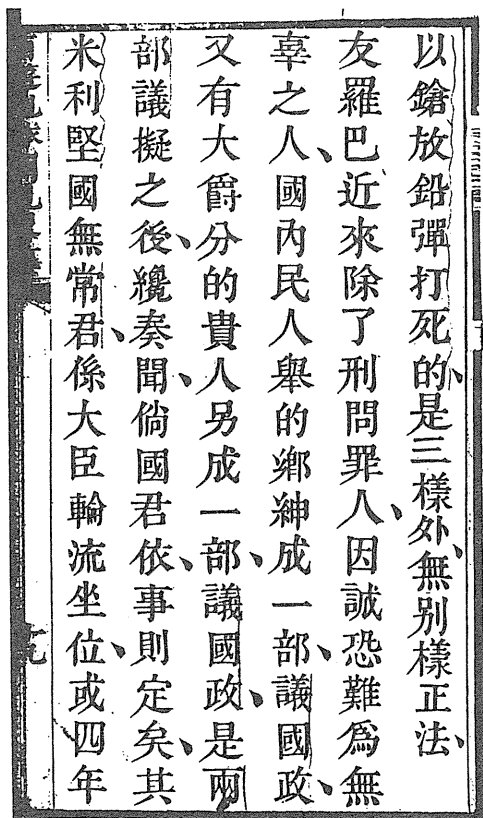 以鎗放鉛彈打死的、是三樣外、無別樣正法、
友羅巴近來除了刑問罪人、因誠恐難爲無
辜之人、國內民人舉的鄉紳成一部、議國政、
又有大爵分的貴人另成一部、議國政、是兩
部議擬之後、纔奏聞、倘國君依、事則定矣、其
米利堅國無常君、係大臣輪流坐位、或四年